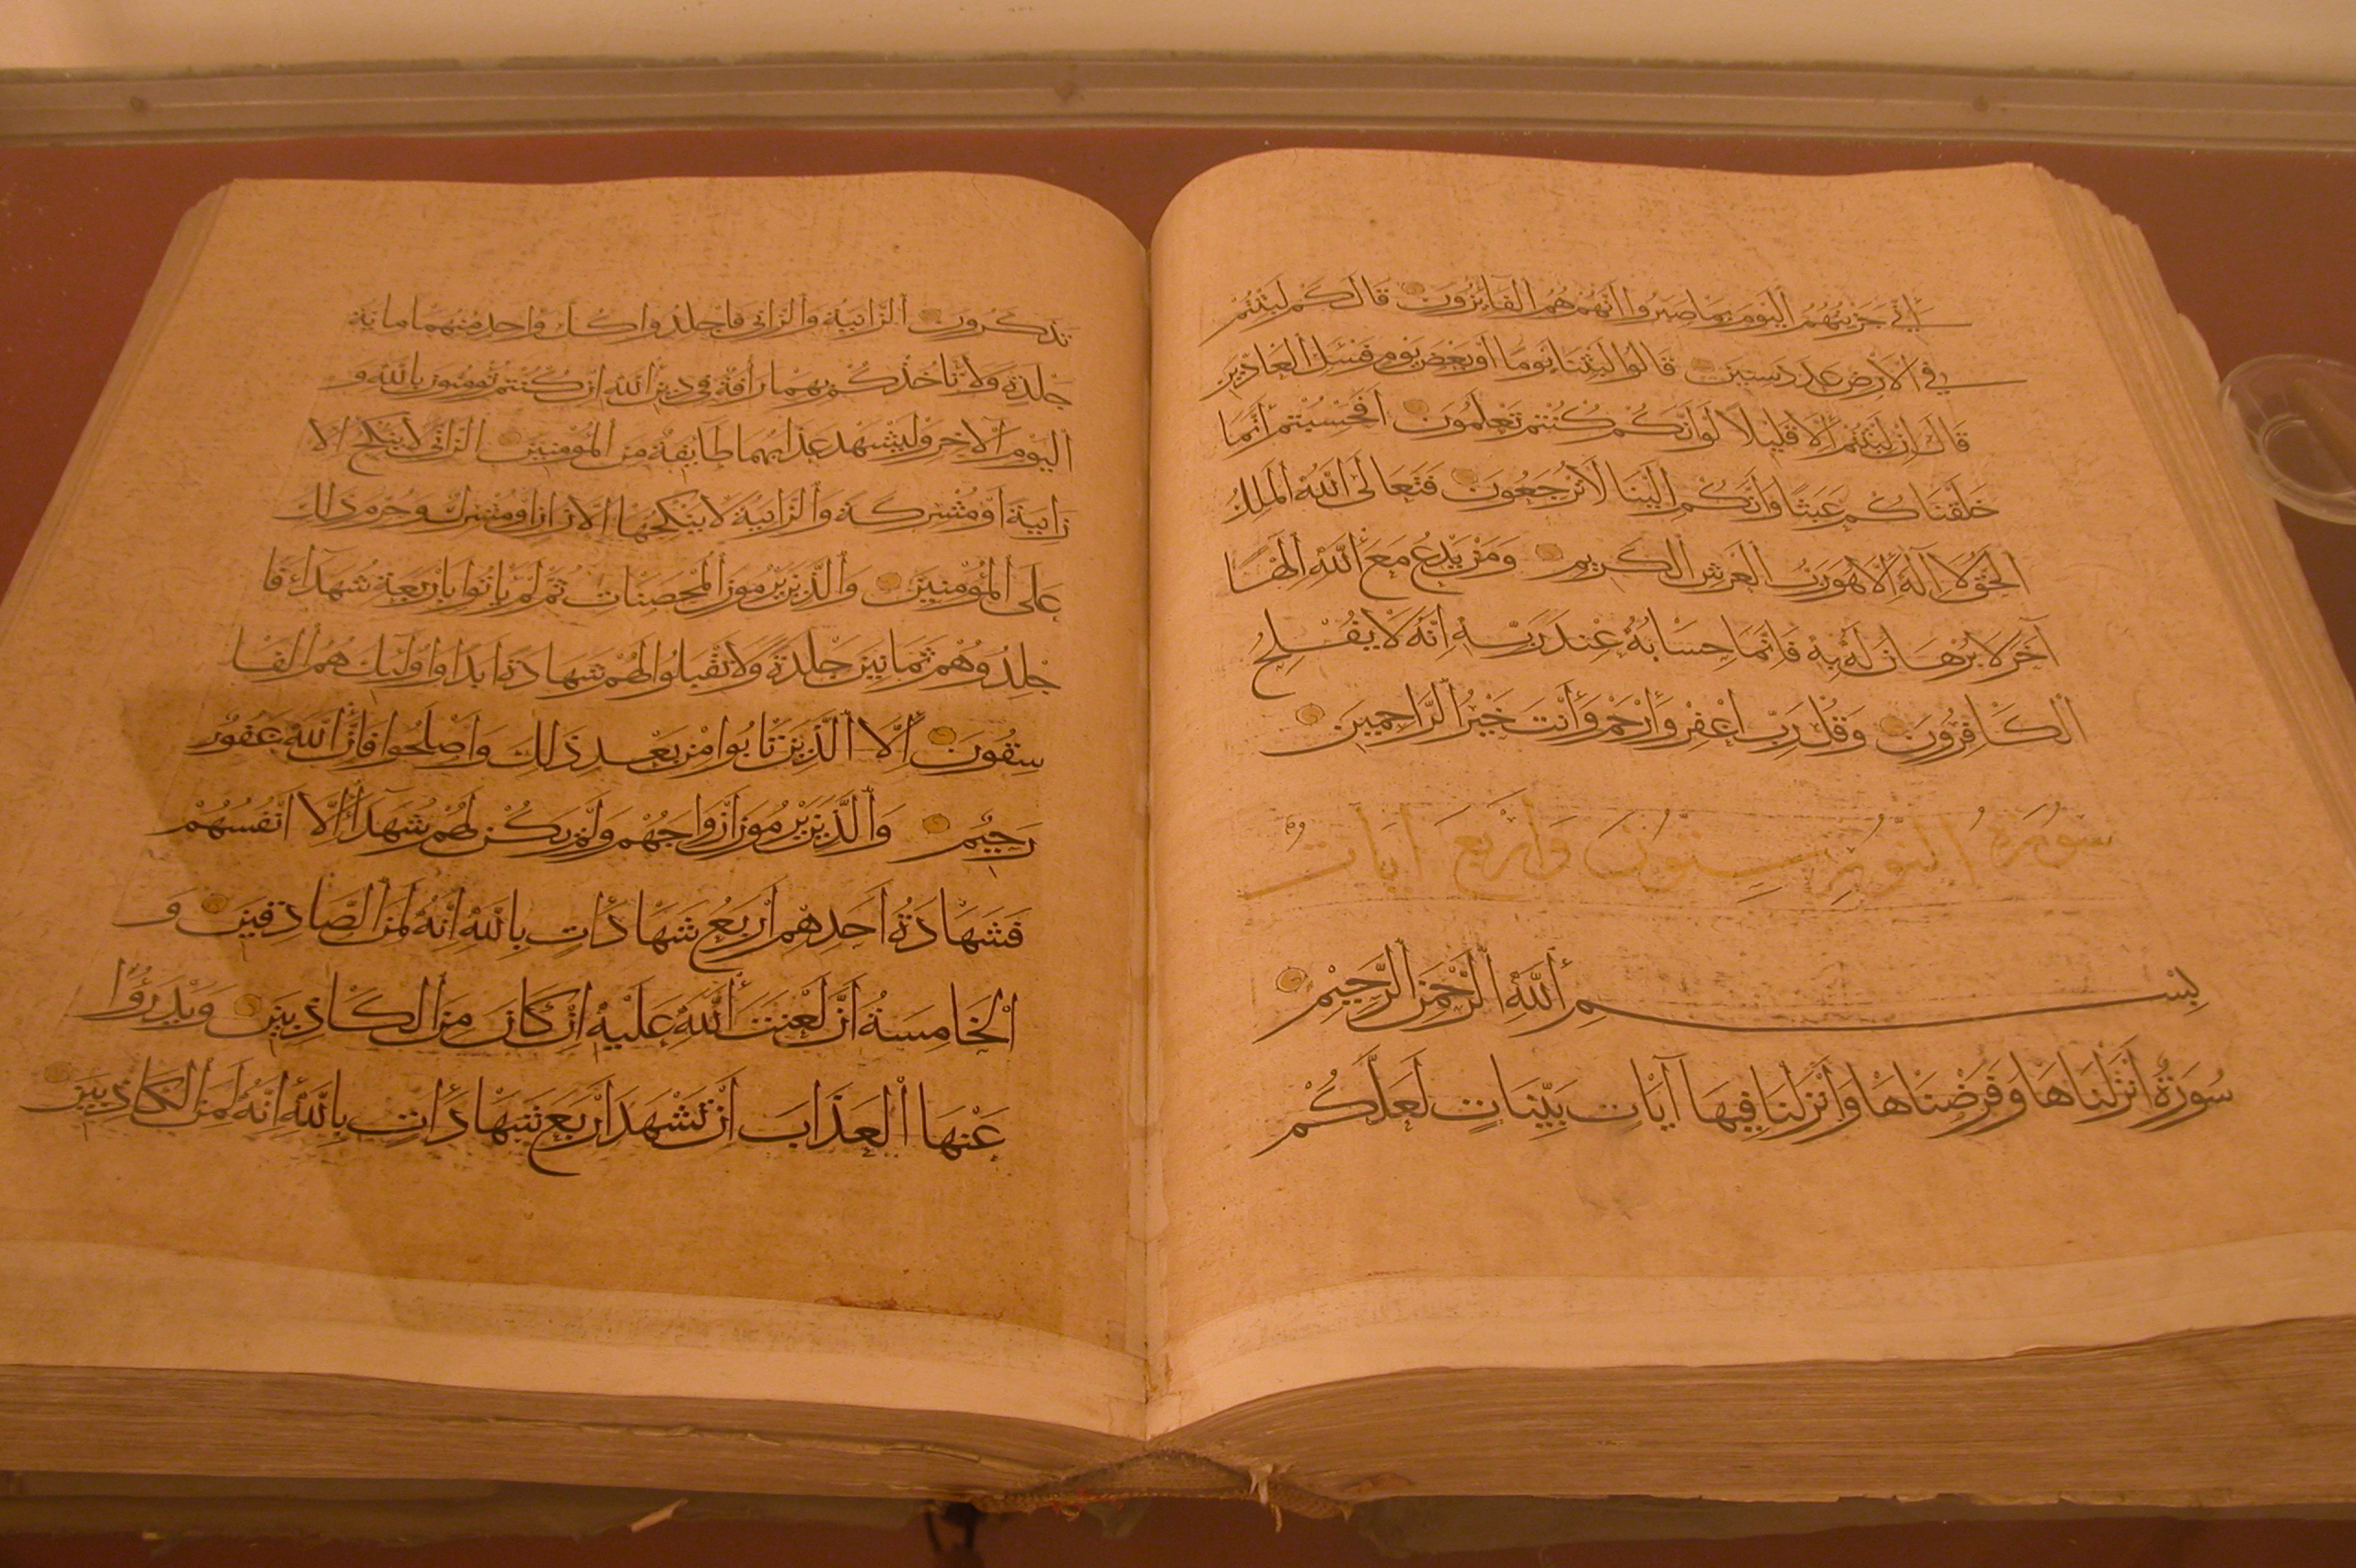 إني جزيتهم اليوم بما صبروا أنهم هم الفايزون قال كم لبثتم
في الأرض عدد سنين قالوا لبثنا يوما أو بعض يوم فسئل العادين
قال إن لبثتم إلا قليلا لو أنكم كنتم تعلمون أفحسبتم أنما
خلقناكم عبثا وأنكم إلينا لا ترجعون فتعالى الله الملك
الحق لا إله إلا هو رب العرش الكريم ومن يدع مع الله إلها
آخر لا برهان له به فإنما حسابه عند ربه إنه لا يفلح
الكافرون وقل رب اغفر وارحم وأنت خير الراحمين
سورة النور ستون وأربع آيات
بسم الله الرحمن الرحيم
سورة أنزلناها وفرضناها وأنزلنا فيها آيات بينات لعلكم
تذكرون الزانية والزاني فاجلدوا كل واحد منهما ماية
جلدة ولا تأخذكم بهما رأفة في دين الله إن كنتم تؤمنون بالله و
اليوم الآخر وليشهد عذابهما طايفة من المؤمنين الزاني لا ينكح إلا
زانية أو مشركة والزانية لا ينكحها إلا زان أو مشرك وحرم ذلك
على المؤمنين والذين يرمون المحصنات ثم لم يأتوا بأربعة شهداء فا
جلدوهم ثمانين جلدة ولا تقبلوا لهم شهادة أبدا وأوليك هم الفا
سقون إلا الذين تابوا من بعد ذلك وأصلحوا فإن الله غفور
رحيم والذين يرمون أزواجهم ولم يكن لهم شهداء إلا أنفسهم
فشهادة أحدهم أربع شهادات بالله إنه لمن الصادقين و
الخامسة أن لعنت الله عليه إن كان من الكاذبين ويدرؤا
عنها العذاب أن تشهد أربع شهادات بالله إنه لمن الكاذبين